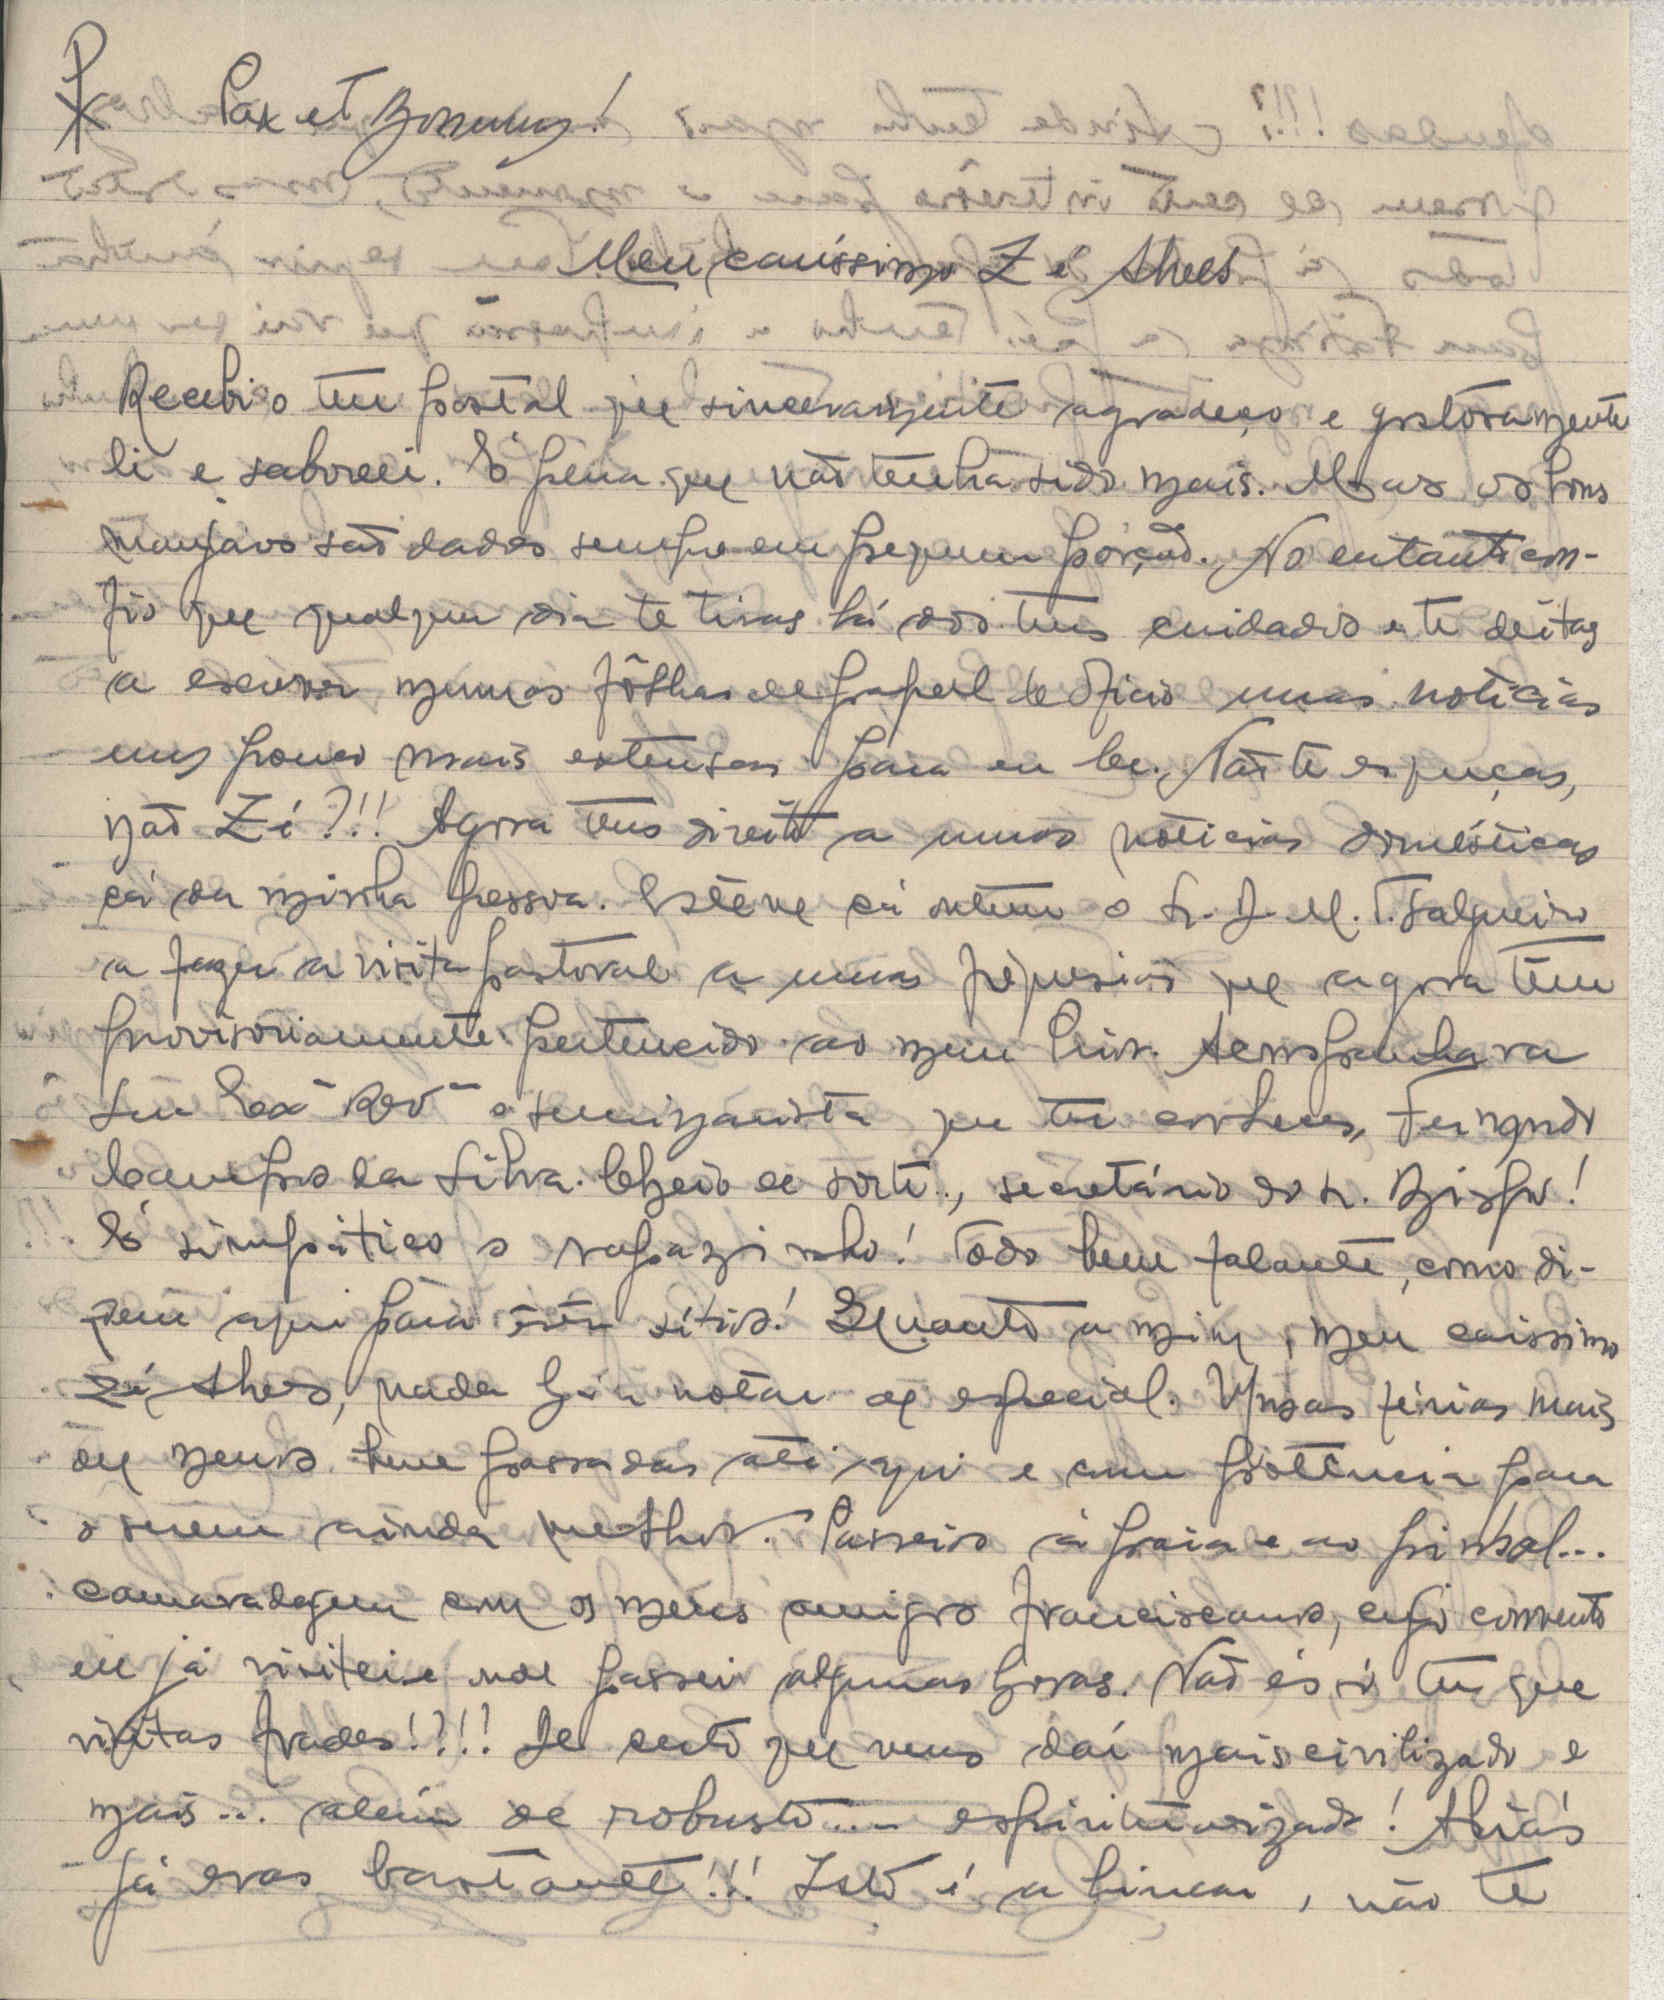 Pax et Bonum!
Meu caríssimo Zé Alves
Recebi o teu postal que sinceramente agradeço e gostosamente
li e saboreei. É pena que não tenha sido mais. Mas os bons
manjares são dados sempre em pequena porção. No entanto con-
fio que qualquer dia te tiras lá dos teus cuidados e te deitas
a escrever numas fôlhas de papel de ofício umas notícias
um pouco mais extensas para eu ler. Não te esqueças,
não Zé?!! Agora tens direito a umas notícias domésticas
cá da minha pessoa. Estêve cá ontem o Sr. D. M. T. Salgueiro
a fazer a visita pastoral a umas freguesias que agora têm
provisòriamente pertencido ao meu Prior. Acompanhava
Sua Exª Revª o seminarista que tu conheces, Fernando
Campos da Silva. Cheio de sorte.., secretário do Sr. Bispo!
É simpático o rapazinho! Todo bem falante, como di-
zem aqui para êstes sítios! Quanto a mim, meu caríssimo
Zé Alves, nada há a notar de especial. Umas férias mais
ou menos bem passadas até aqui e com potência para
o serem ainda melhor. Passeios à praia e ao pinhal...
camaradagem com os meus amigos franciscanos, cujo convento
eu já visitei e onde passei algumas horas. Não és só tu que
visitas frades!?!! De certo que vens daí mais civilizado e
mais... além de robusto.... espiritualizado! Aliás
já eras bastante!!! Isto é a brincar, não te